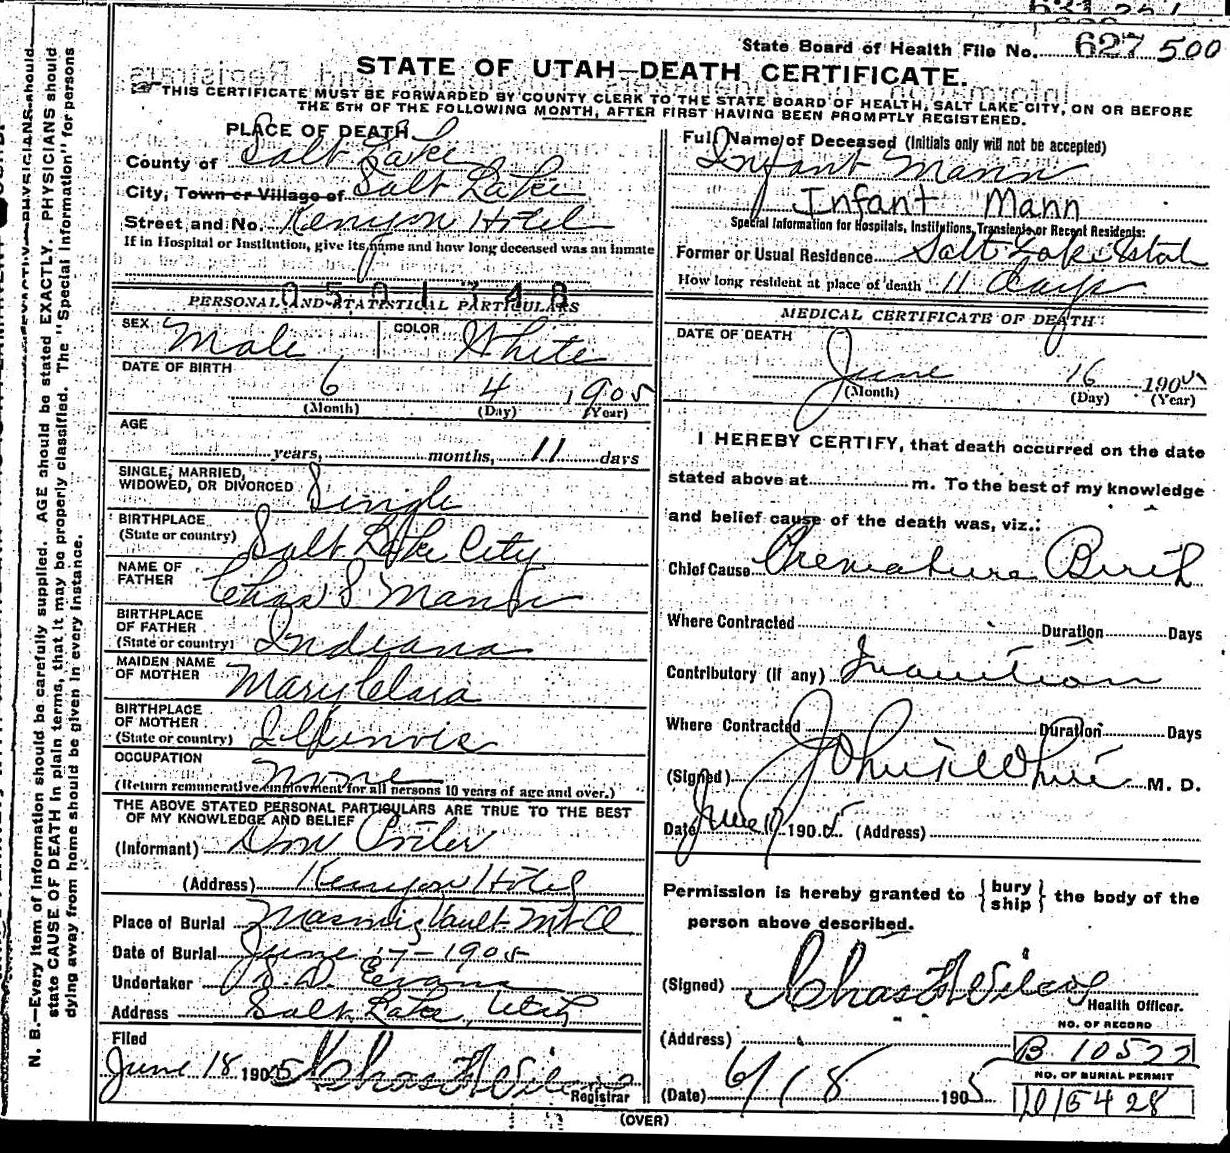 State Board of Health File No. 627 500
STATE OF UTAH—DEATH CERTIFICATE.
THIS CERTIFICATE MUST BE FORWARDED BY COUNTY CLERK TO THE STATE BOARD OF HEALTH, SALT LAKE CITY, ON OR BEFORE
THE 5TH OF THE FOLLOWING MONTH, AFTER FIRST HAVING BEEN PROMPTLY REGISTERED.
PLACE OF DEATH
County of Salt Lake
City, Town or Village of Salt Lake
Street and No. Kenyon Hotel
If in Hospital or Institution, give its name and how long deceased was an inmate
0501748
PERSONAL AND STATISTICAL PARTICULARS
SEX Male COLOR White
DATE OF BIRTH
6 4 1905
(Month) (Day) (Year)
AGE
years, months, 11 days
SINGLE, MARRIED,
WIDOWED, OR DIVORCED Single
BIRTHPLACE
(State or country) Salt Lake City
NAME OF
FATHER Chas S Mann
BIRTHPLACE
OF FATHER
(State or country) Indiana
MAIDEN NAME
OF MOTHER Mary Clara
BIRTHPLACE
OF MOTHER
(State or country) Illinois
OCCUPATION
None
(Return remunerative employment for all persons 10 years of age and over.)
THE ABOVE STATED PERSONAL PARTICULARS ARE TRUE TO THE BEST
OF MY KNOWLEDGE AND BELIEF
(Informant) Don
(Address) Kenyon Hotel
Place of Burial Vault Mt
Date of Burial June 17-1905
Undertaker Evans
Address Salt Lake, Utah
Filed
June 18 1905 Chas
Registrar
(OVER)
Full Name of Deceased (Initials only will not be accepted)
Infant Mann
Infant Mann
Special Information for Hospitals, Institutions, Transients or Recent Residents:
Former or Usual Residence Salt Lake Utah
How long resident at place of death 11 days
MEDICAL CERTIFICATE OF DEATH
DATE OF DEATH
June 16 1905
(Month) (Day) (Year)
I HEREBY CERTIFY, that death occurred on the date
stated above at m. To the best of my knowledge
and belief cause of the death was, viz.:
Chief Cause Premature Birth
Where Contracted Duration Days
Contributory (if any) Inanition
Where Contracted Duration Days
(Signed) John White M. D.
Date June 17 1905 (Address)
Permission is hereby granted to {bury
ship} the body of the
person above described.
(Signed) Chas
Health Officer.
(Address)
NO. OF RECORD
B 10522
(Date) 6/18 1905
NO. OF BURIAL PERMIT
N. B.—Every item of information should be carefully supplied. AGE should be stated EXACTLY. PHYSICIANS should
state CAUSE OF DEATH in plain terms, that it may be properly classified. The "Special Information" for persons
dying away from home should be given in every instance.